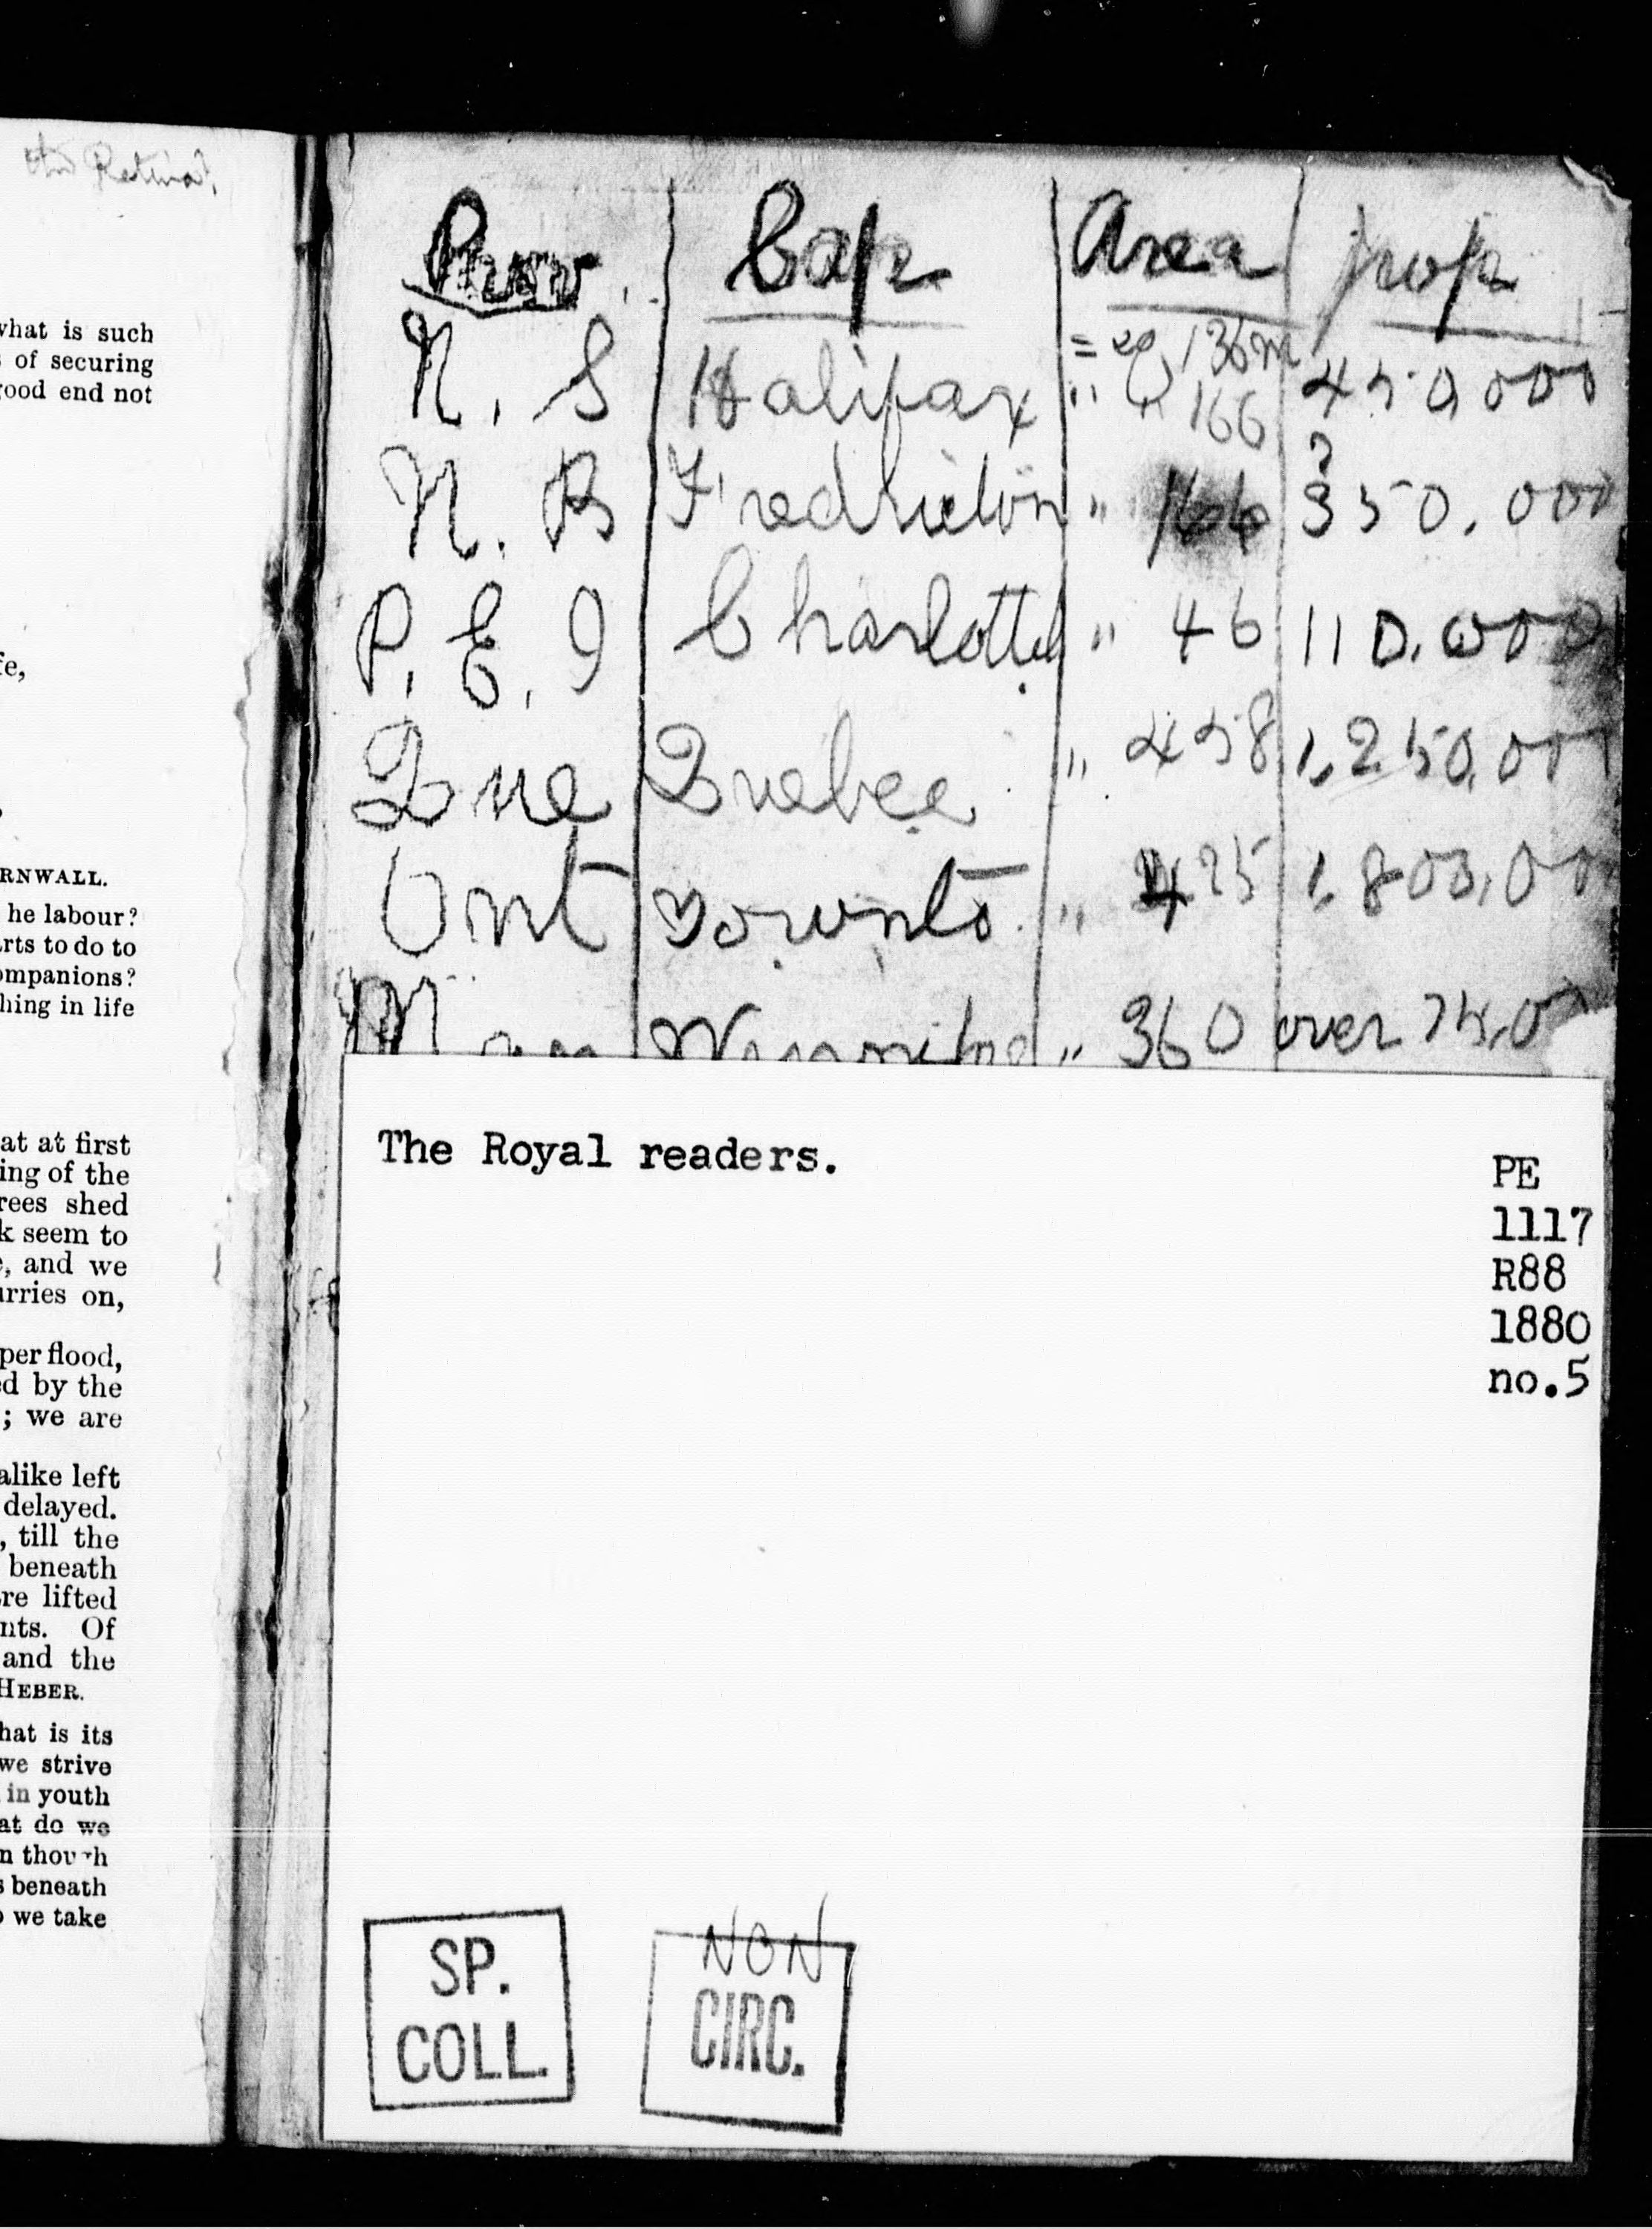 what is such
of securing
good end not
fe,
RNWALL.
he labour?
arts to do to
ompanions?
hing in life
at at first
ing of the
rees shed
k seem to
, and we
urries on,
per flood,
ed by the
; we are
alike left
delayed.
, till the
beneath
re lifted
nts. Of
and the
HEBER.
hat is its
we strive
in youth
at do we
n though
s beneath
we take
Prov. Cap Area pop
= sq 136m
N. S Halifax " 166 450,000
N. B Fredricton " 166 350,000
P. E. I Charlotte " 46 110,000
Que Quebec " 458 1,250,00
Ont Toronto " 425 1,803,00
Man Winnipeg " 360 over 75,0
The Royal readers.
PE
1117
R88
1880
no.5
SP.
COLL.
NON
CIRC.